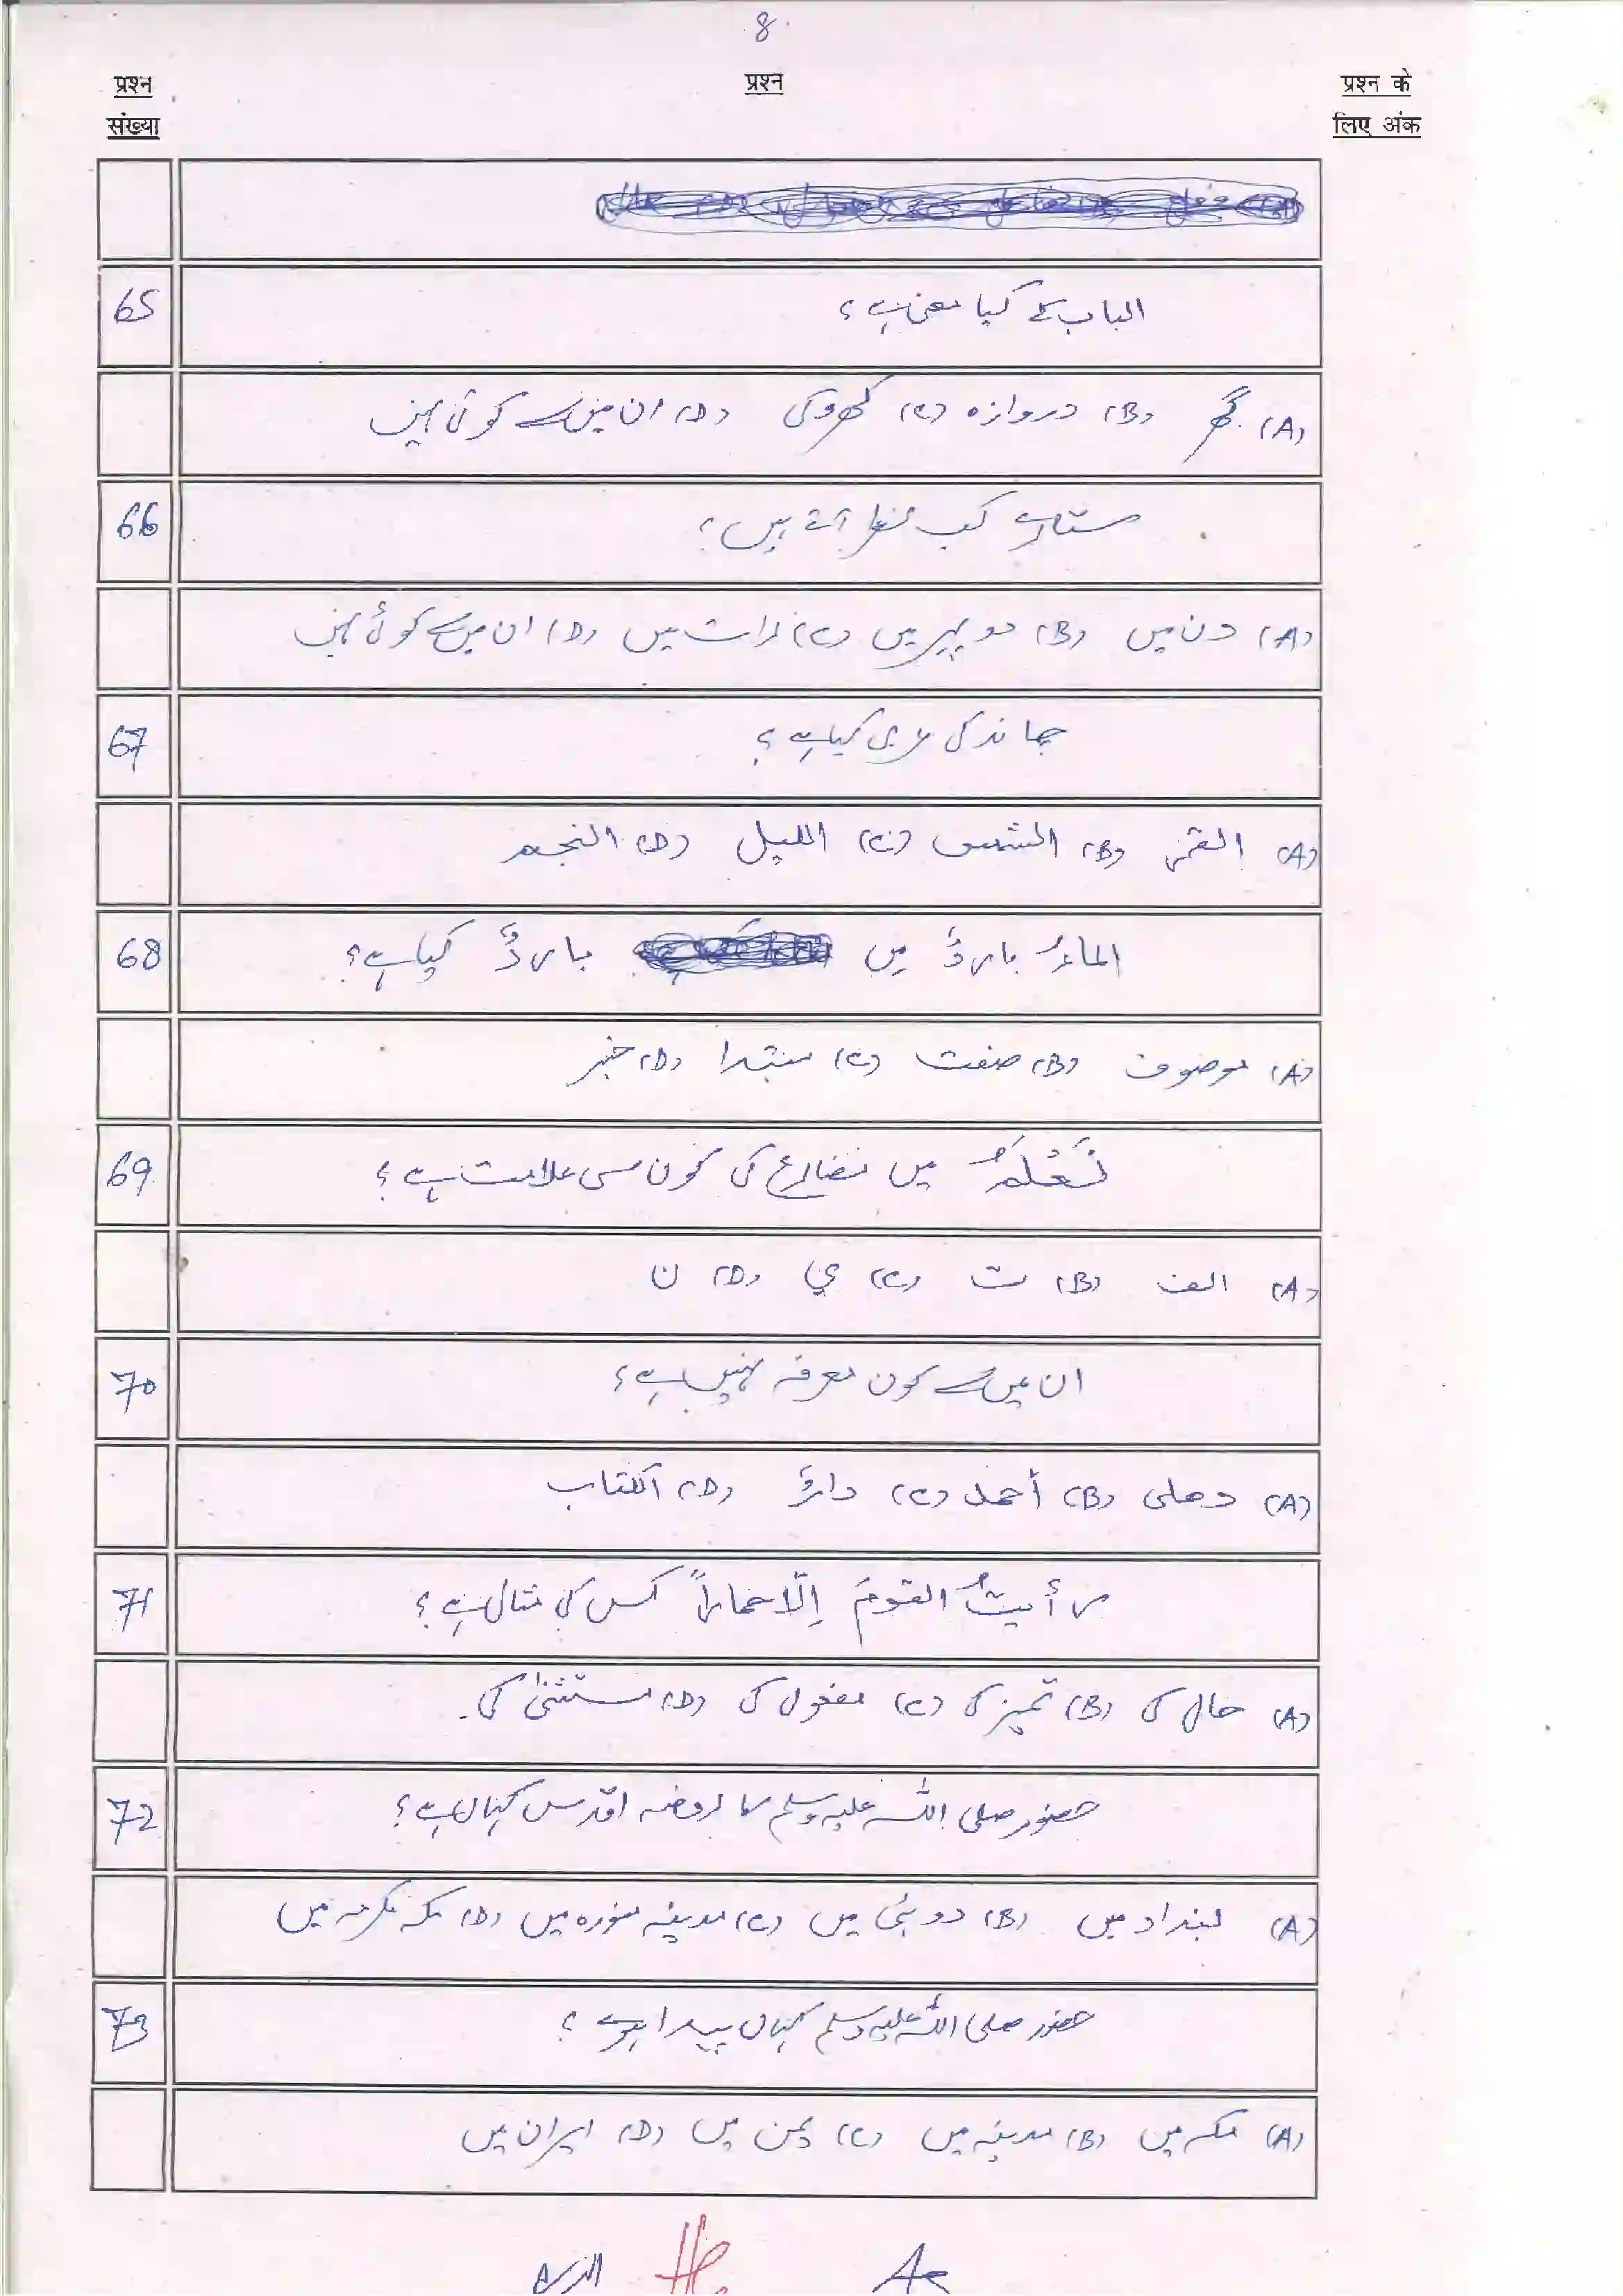 8.
प्रश्न संख्या
प्रश्न
प्रश्न के लिए अंक
65 الباب کے کیا معنی ہے؟
(A) گھر (B) دروازہ (C) کھڑکی (D) ان میں سے کوئی نہیں
66 ستارے کب نظر آتے ہیں؟
(A) دن میں (B) دوپہر میں (C) رات میں (D) ان میں سے کوئی نہیں
67 چاند کی عربی کیا ہے؟
(A) القمر (B) الشمس (C) الليل (D) النجم
68 الماءُ باردٌ میں باردٌ کیا ہے؟
(A) موصوف (B) صفت (C) مبتدا (D) خبر
69 نَعْلَمُ میں مضارع کی کون سی علامت ہے؟
(A) الف (B) ت (C) ي (D) ن
70 ان میں سے کون معرفہ نہیں ہے؟
(A) دھلی (B) أحمد (C) دارٌ (D) الكتاب
71 رأيتُ القومَ إلّا حماراً کس کی مثال ہے؟
(A) حال کی (B) تمیز کی (C) مفعول کی (D) مستثنیٰ کی۔
72 حضور صلی اللہ علیہ وسلم کا روضہ اقدس کہاں ہے؟
(A) بغداد میں (B) دوبئی میں (C) مدینہ منورہ میں (D) مکہ مکرمہ میں
73 حضور صلی اللہ علیہ وسلم کہاں پیدا ہوے؟
(A) مکہ میں (B) مدینہ میں (C) یمن میں (D) ایران میں